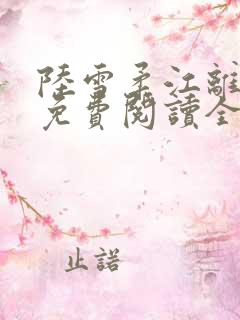 陸雪柔江離
免費閱讀全
止諾